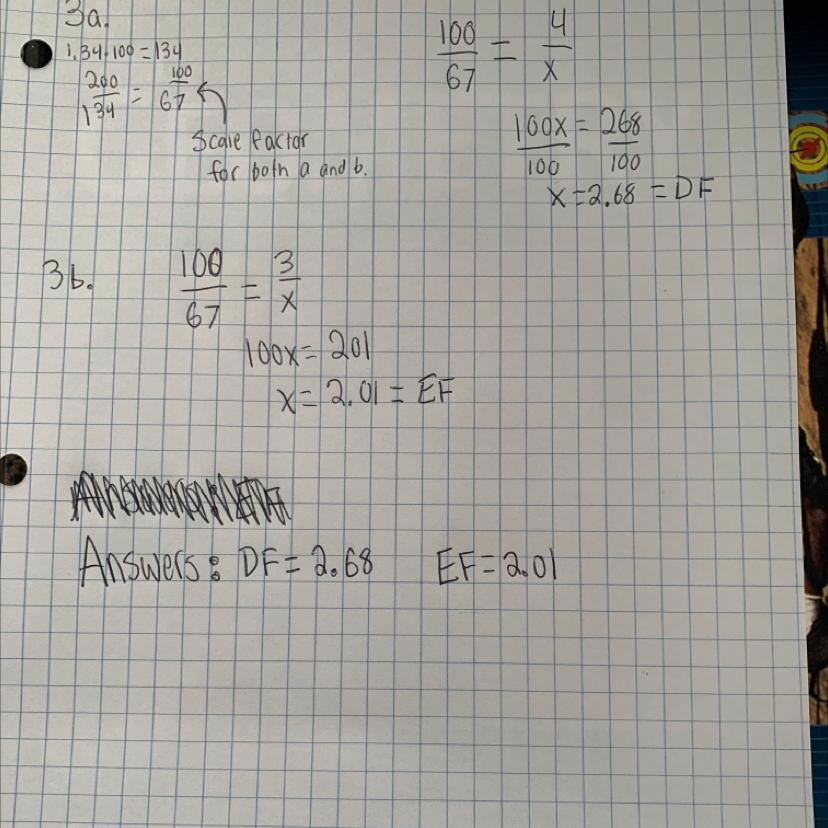 3a.
1.34·100 = 134
200/134 = 100/67
Scale factor
for both a and b.
100/67 = 4/x
100x/100 = 268/100
x = 2.68 = DF
3b.
100/67 = 3/x
100x = 201
x = 2.01 = EF
Answers: DF = 2.68 EF = 2.01